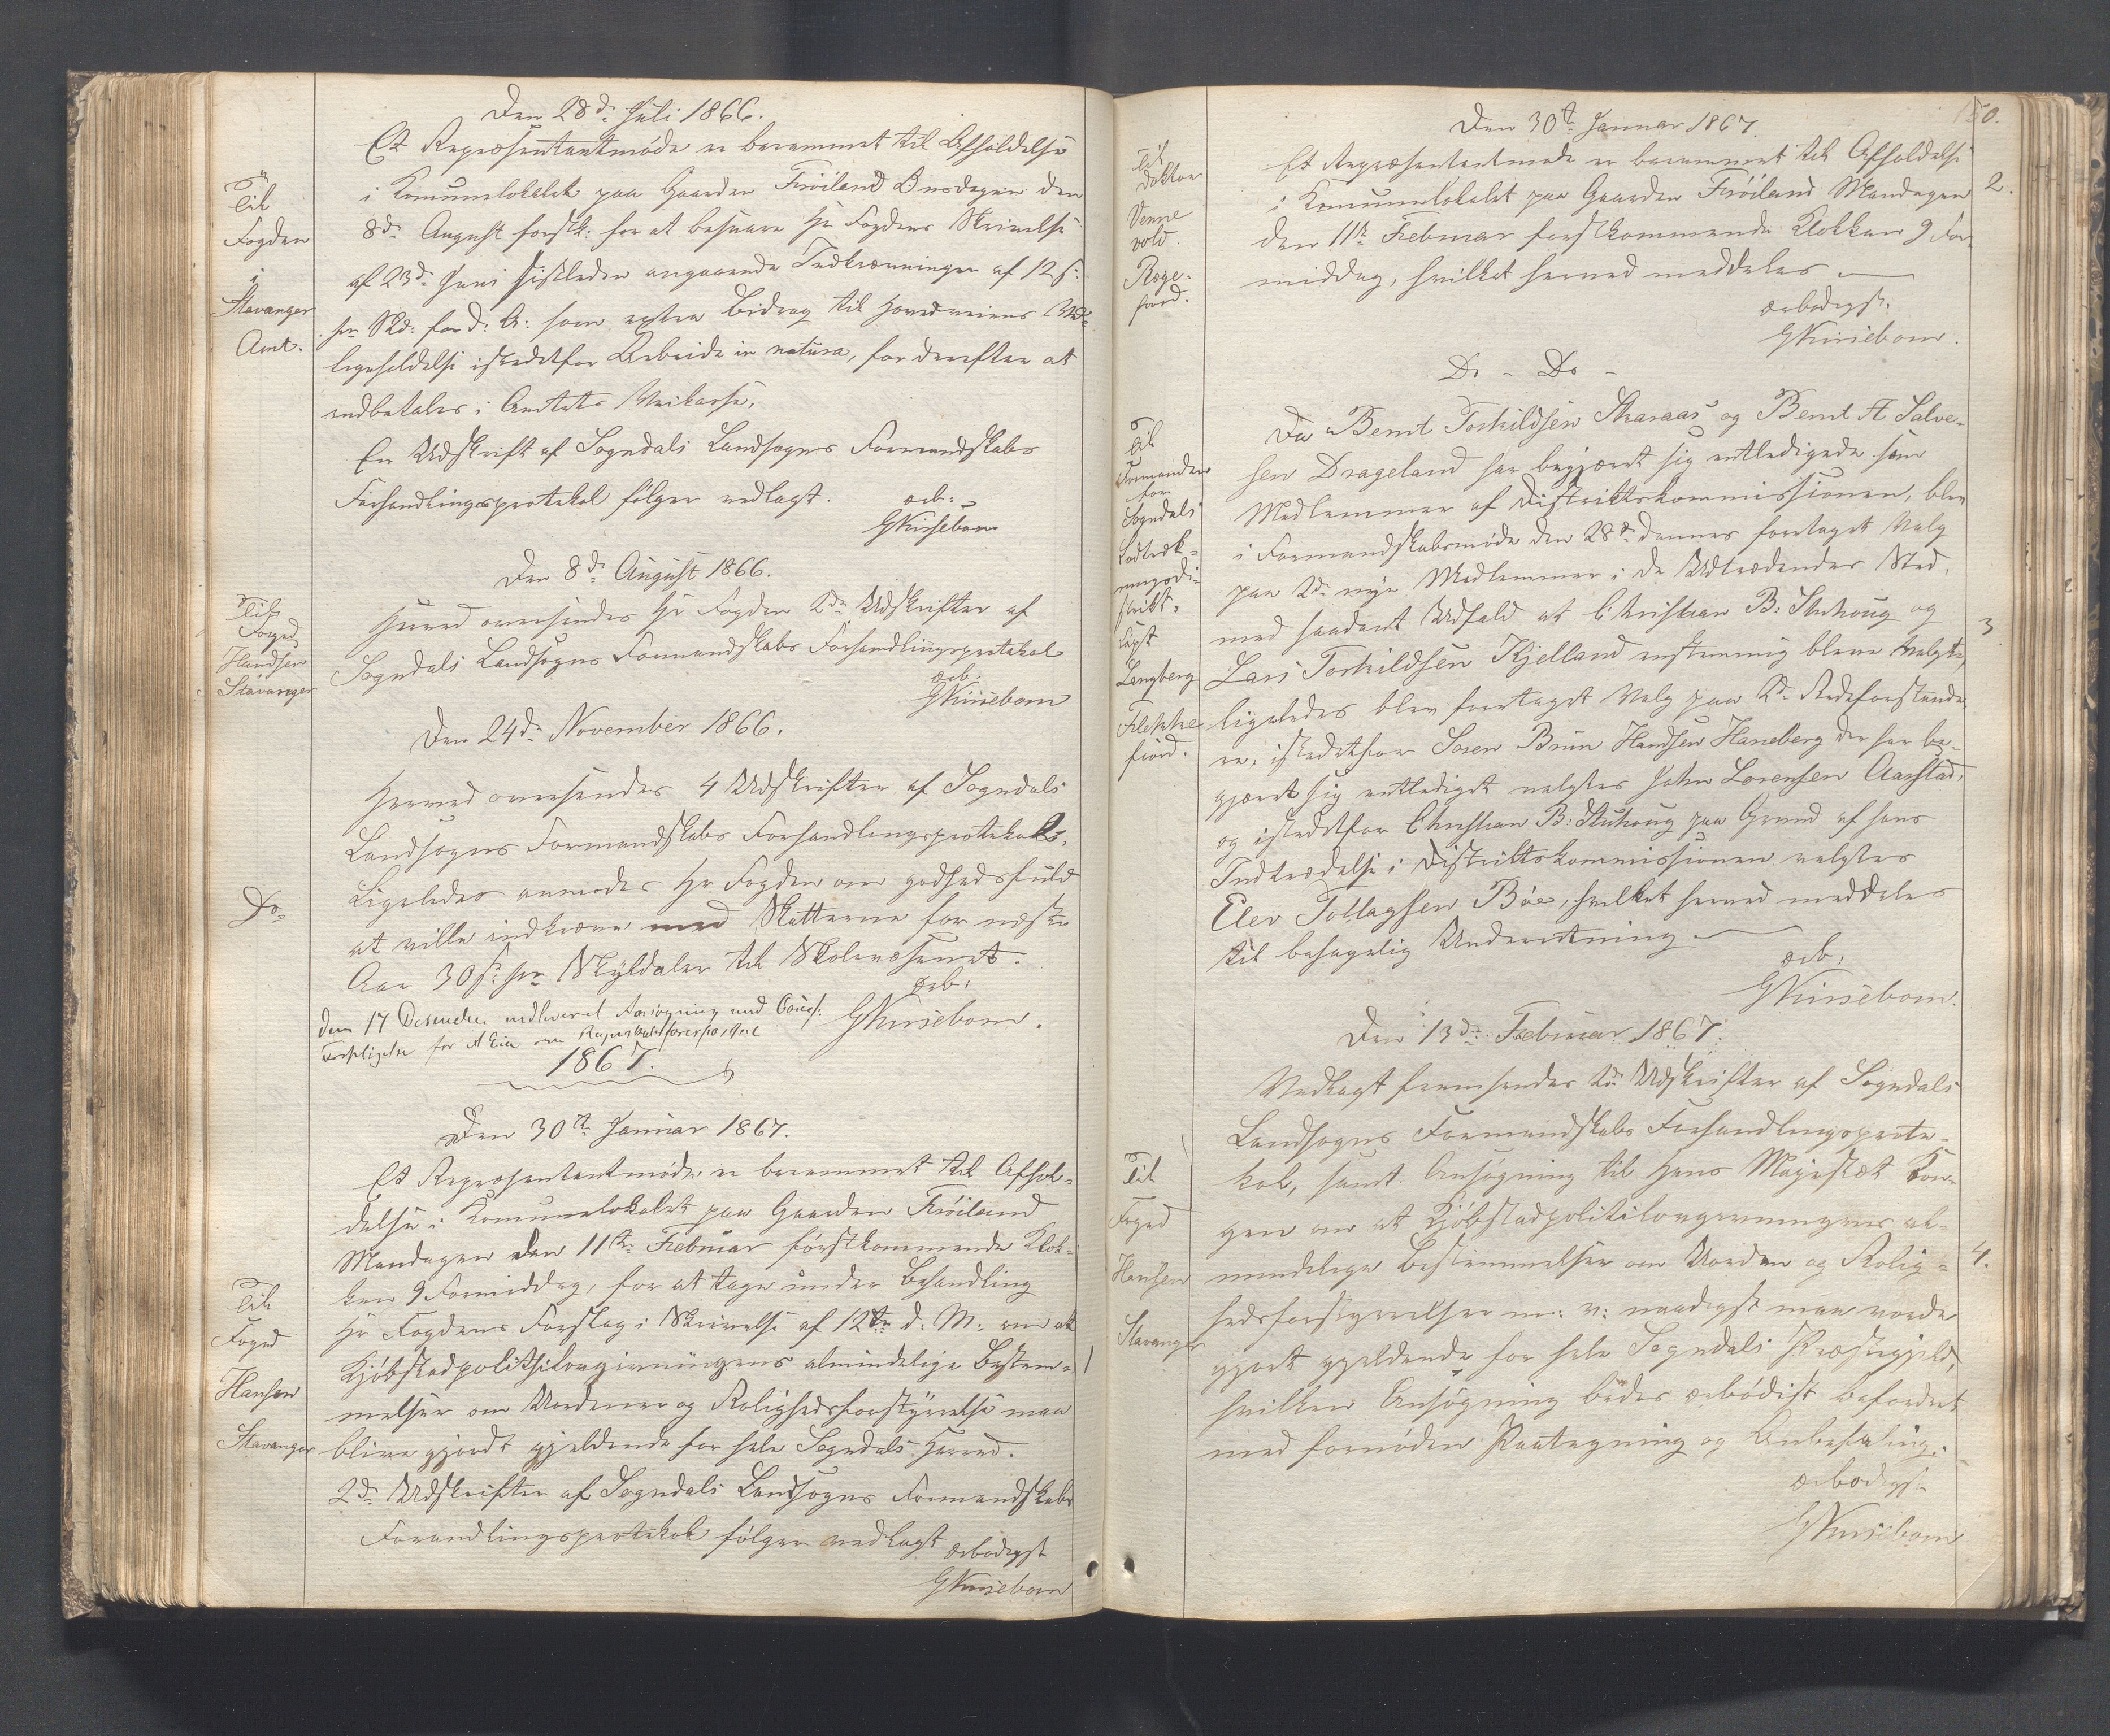 Den 28d. Juli 1866.
Til
Fogden
i
Stavanger
Amt.
Et Repræsentantmøde er berammet til Afholdelse
i Komunelokalet paa Gaarden Frøiland Onsdagen den
8de August førstk: for at besvare Hr Fogdens Skrivelse
af 23de Juni sistleden angaaende Indkrævningen af 12 s:
pr Skd: for d: A: som extra Bidrag til Hovedveiens Ved-
ligeholdelse istedetfor Arbeide in natura, for derefter at
indbetales i Amtets Veikasse.
En Udskrift af Sogndals Landsogns Formandskabs
Forhandlingsprotokol følger vedlagt.
ærb:
GKirsebom
Den 8de August 1866.
Til
Foged
Handsen
Stavanger
Herved oversendes Hr Fogden 2de Udskrifter af
Sogndals Landsogns Formandskabs Forhandlingsprotokol
ærb:
GKirsebom
Den 24de November 1866.
Do
Herved oversendes 4 Udskrifter af Sogndals
Landsogns Formandskabs Forhandlingsprotokol.
Ligeledes anmodes Hr Fogden om godhedsfuld
at ville indkræve med Skatterne for næste
Aar 30 s: pr Skyldaler til Skolevæsenet.
ærb:
GKirsebom.
den 17 December indleveret Ansøgning med
for
1867.
Den 30te Januar 1867.
Til
Foged
Hansen
Stavanger
Et Repræsentantmøde er berammet til Afhol-
delse i Komunelokalet paa Gaarden Frøiland
Mandagen den 11te Februar førstkommende Klok-
ken 9 Formiddag, for at tage under Behandling
Hr Fogdens Forslag i Skrivelse af 12te d. M. om at
Kjøbstadpolitilovgivningens almindelige Bestem-
1
melser om Uordener og Rolighedsforstyrrelse maa
blive gjordt gjældende for hele Sogndals Herred.
2de Udskrifter af Sogndals Landsogns Formandskabs
Forandlingsprotokol følger vedlagt
ærbødigst
GKirsebom
150.
Den 30te Januar 1867.
Til
Doktor
Venne
vold.
Rege-
fiord.
Et Repræsentantmøde er berammet til Afholdelse
i Komunelokalet paa Gaarden Frøiland Mandagen
2.
den 11te Februar førstkommende Klokken 9 For-
middag, hvilket herved meddeles
ærbødigst.
GKirsebom.
Do - Do -
Til
Formanden
for
Sogndals
Lodtræk-
ningsdi-
strikt:
Langberg
Flekke
fiord.
Da Bernt Torkildsen Skaraas og Bernt A Salve-
sen Drageland har begjært sig entledigede som
Medlemmer af Distriktskommissionen, blev
i Formandskabsmøde den 28de dennes foretaget Valg
paa 2de nye Medlemmer i de Udtrædendes Sted,
med saadant Udfald at Christian B: Stuhoug og
3
Lars Torkildsen Kjelland enstemmig bleve Valgte,
ligeledes blev foretaget Valg paa 2de Rodeforstande
re; istedetfor Soren Brun Handsen Haneberg der har be-
gjært sig entlediget valgtes John Lorensen Aarstad,
og istedetfor Christian B: Stuhoug paa Grund af hans
Indtrædelse i Distriktskommissionen valgtes
Elev Tollagsen Bøe, hvilket herved meddeles
til behagelig Underretning
ærb:
GKirsebom.
Den 13de Februar 1867.
Til
Foged
Hansen
Stavanger
Vedlagt fremsendes 2de Udskrifter af Sogndals
Landsogns Formandskabs Forhandlingsproto-
kol, samt Ansøgning til Hans Majestæt Kon-
gen om at Kjøbstadpolitilovgivningens al-
mindelige Bestemmelser om Uorden og Rolig-
4.
hedsforstyrrelser m: v: naadigst maa vorde
gjort gjældende for hele Sogndals Præstegjeld,
hvilken Ansøgning bedes ærbødist befordret
med fornøden Paategning og Anbefaling.
ærbødigst
GKirsebom